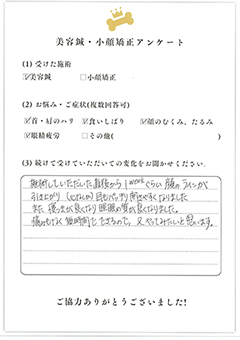 美容鍼・小顔矯正アンケート
(1) 受けた施術
☑美容鍼 □小顔矯正
(2) お悩み・ご症状(複数回答可)
☑首・肩のハリ ☑食いしばり ☑顔のむくみ、たるみ
☑眼精疲労 □その他( )
(3) 続けて受けていただいての変化をお聞かせください。
施術していただいた直後から1weekぐらい顔のラインが
引き上がり (心なしか) 目もパッチリ開きやすくなりました
また 寝つきが良くなり 睡眠の質が良くなりました。
痛みもなく 短時間で できるので、又 やってみたいと思います。
ご協力ありがとうございました!